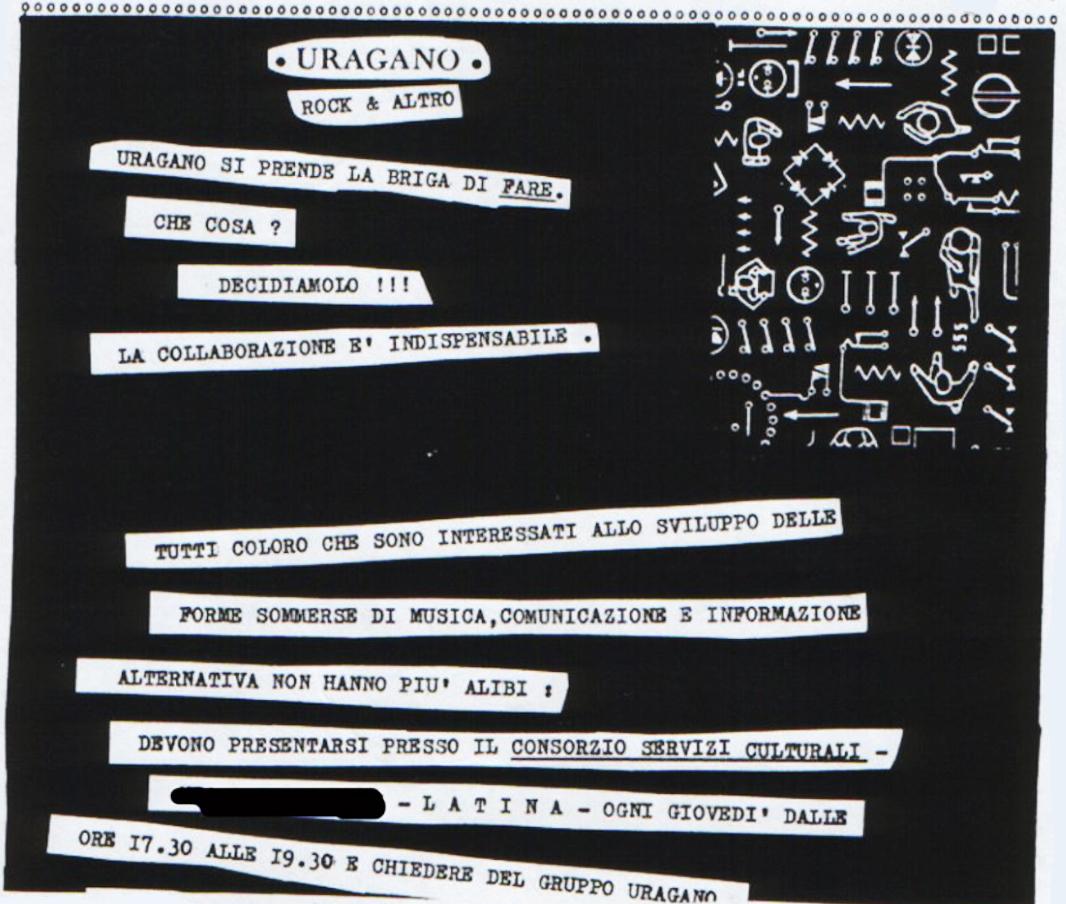 • URAGANO •
ROCK & ALTRO
URAGANO SI PRENDE LA BRIGA DI FARE.
CHE COSA ?
DECIDIAMOLO !!!
LA COLLABORAZIONE E' INDISPENSABILE .
TUTTI COLORO CHE SONO INTERESSATI ALLO SVILUPPO DELLE
FORME SOMMERSE DI MUSICA,COMUNICAZIONE E INFORMAZIONE
ALTERNATIVA NON HANNO PIU' ALIBI :
DEVONO PRESENTARSI PRESSO IL CONSORZIO SERVIZI CULTURALI -
- L A T I N A - OGNI GIOVEDI' DALLE
ORE I7.30 ALLE I9.30 E CHIEDERE DEL GRUPPO URAGANO